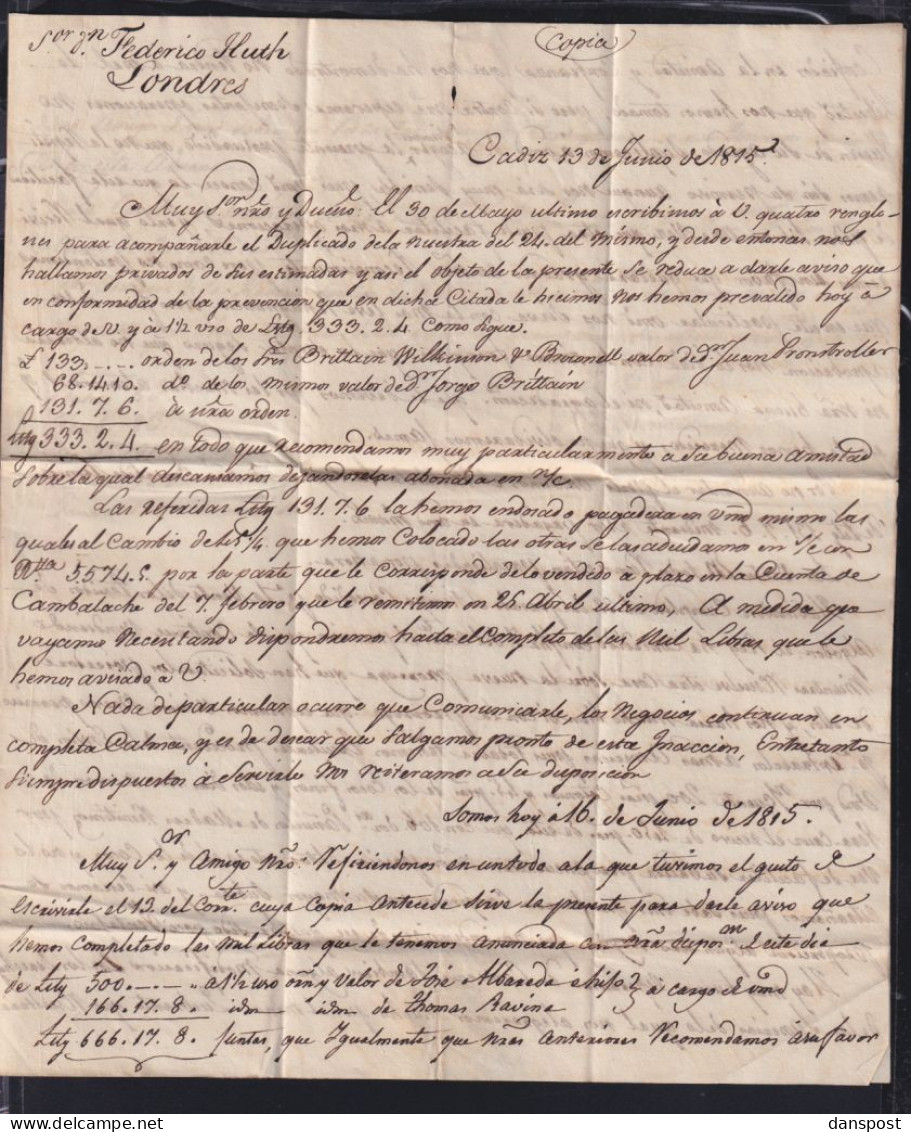 S.or dn Federico Huth
Londres
Copia
Cadiz 13 de Junio de 1815.
Muy S.or nro y Dueño: El 30 de Mayo ultimo escribimos à V. quatro renglo-
nes para acompañarle el Duplicado dela nuestra del 24. del mismo, y desde entonces nos
hallamos privados de sus estimadas y asi el objeto de la presente se reduce a darle aviso que
en conformidad de la prevencion que en dicha Citada le hicimos nos hemos prevalido hoy à
cargo de V. y à 1½ uso de Lstg 333.2.4 como sigue.
£ 133.-.-. orden de los Sres Brittain Wilkinson & Brownell valor de dn Juan
68.14.10. do. de los mismos valor de Dn Jorge Brittain
131.7.6. à nra orden.
Lstg 333.2.4. en todo que recomendamos muy particularmente a su buena amistad
sobre la qual descansamos dejandoselas abonada en n/c.
Las referidas Lstg 131.7.6 la hemos endosado pagadera en Vmd mismo las
quales al Cambio de que hemos Colocado las otras se las adeudamos en s/c con
5.574.8. por la parte que le corresponde delo vendido a plazo en la Cuenta de
Cambalache del 7. febrero que le remitimos en 25 Abril ultimo, A medida que
vayamos necesitando dispondremos hasta el completo de las Mil Libras que le
hemos avisado à V.
Nada de particular ocurre que Comunicarle, los Negocios continuan en
completa Calma, y es de desear que salgamos pronto de esta Inaccion, Entretanto
siempre dispuestos à Servirle Nos reiteramos a Su disposicion
Somos hoy à 16. de Junio de 1815.
Muy S.or y Amigo nro: Refiriendonos en un todo a la que tuvimos el gusto de
escrivirle el 13. del Corr.te cuya Copia antecede sirve la presente para darle aviso que
hemos completado las mil Libras que le tenemos anunciada con nra dispon este dia
de Lstg 500.-.-. à 1½ uso orn y valor de José Albareda è hijo } à cargo de Vmd
166.17.8. idm idm de Thomas Ravina
Lstg 666.17.8. Juntas, que Igualmente que nras anteriores Recomendamos à su favor
danspost